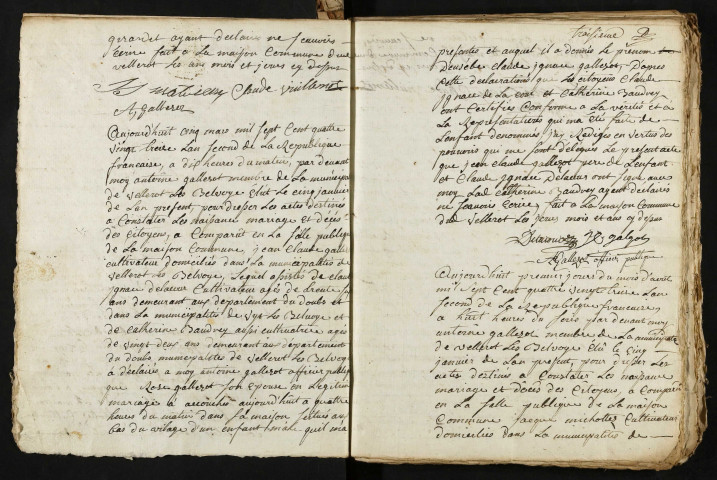 girardet ayant declaire ne scauoir
ecrire fait a la maison Commune dud
vellerot les ans mois et jours cy dessus
Claude
A Gallezot
aujourd'huit cinq mars mil sept Cent quatre
vingt treize Lan second de La Republique
francaise, a dix heures du matin, par devant
moy antoine gallezot membre de La municipalité
de vellerot Les Belvoye Elut le cinq janvier
de Lan present, pour dresser Les actes destinés
a Constater Les naissances mariage et décés
des Citoyens, a Comparut en La salle publique
de La maison Commune, jean Claude gallezot
cultivateur domiciliés dans La municipalités de
vellerot Les Belvoye, Lequel assistés de claude
ignace delacour Cultivateur agés de trente six
ans demeurant aux departement du doubs et
dans La municipalités de vys les Belvoye et
de Catherine Baudrey aussi cultivatrice agés
de vingt deux ans demeurant au departement
du doubs municipalites de vellerot Les Belvoye
a déclairés, a moy antoine gallezot officier public
que Rose gallezot son Epouse en Legitime
mariage a accouchés aujourd'huit a quatre
heures du matin dans sa maison scitues au
bas du vilage d'un Enfant male quil ma
troisieme
presentés et auquel il a donnés le prénom
Deusebe Claude ignace gallezot, Dapres
Cette declaration que les citoyens Claude
ignace de la cour et Catherine Baudrey
ont Certifiés Conforme a La verités et a
La Representation qui ma Eté faite de
Lenfant denommés jay Rédigés en vertus des
pouvoirs qui me sont délégués Le present acte
que jean Claude gallezot pere de Lenfant
et Claude ignace Delacour ont signé avec
moy Lad Catherine Baudrey ayant declairés
ne scavoir Ecrire, fait a La maison Commune
dud vellerot Les jours mois et ans cy dessus
A Gallezot officier publique
aujourd'huit premier jours du mois d'avril
mil sept Cent quatre vingt treize Lan
second de La Republique francaise
a huit heures du soir par devant moy
antoine gallezot membre de La municipalité
de vellerot Les Belvoye Elut le cinq
janvier de Lan present, pour dresser Les
actes destinés a Constater Les naissance
mariage et décés des Citoyens, a Comparut
en La salle publique de La maison
Commune jacque michotte Cultivateur
domiciliés dans La municipalités de